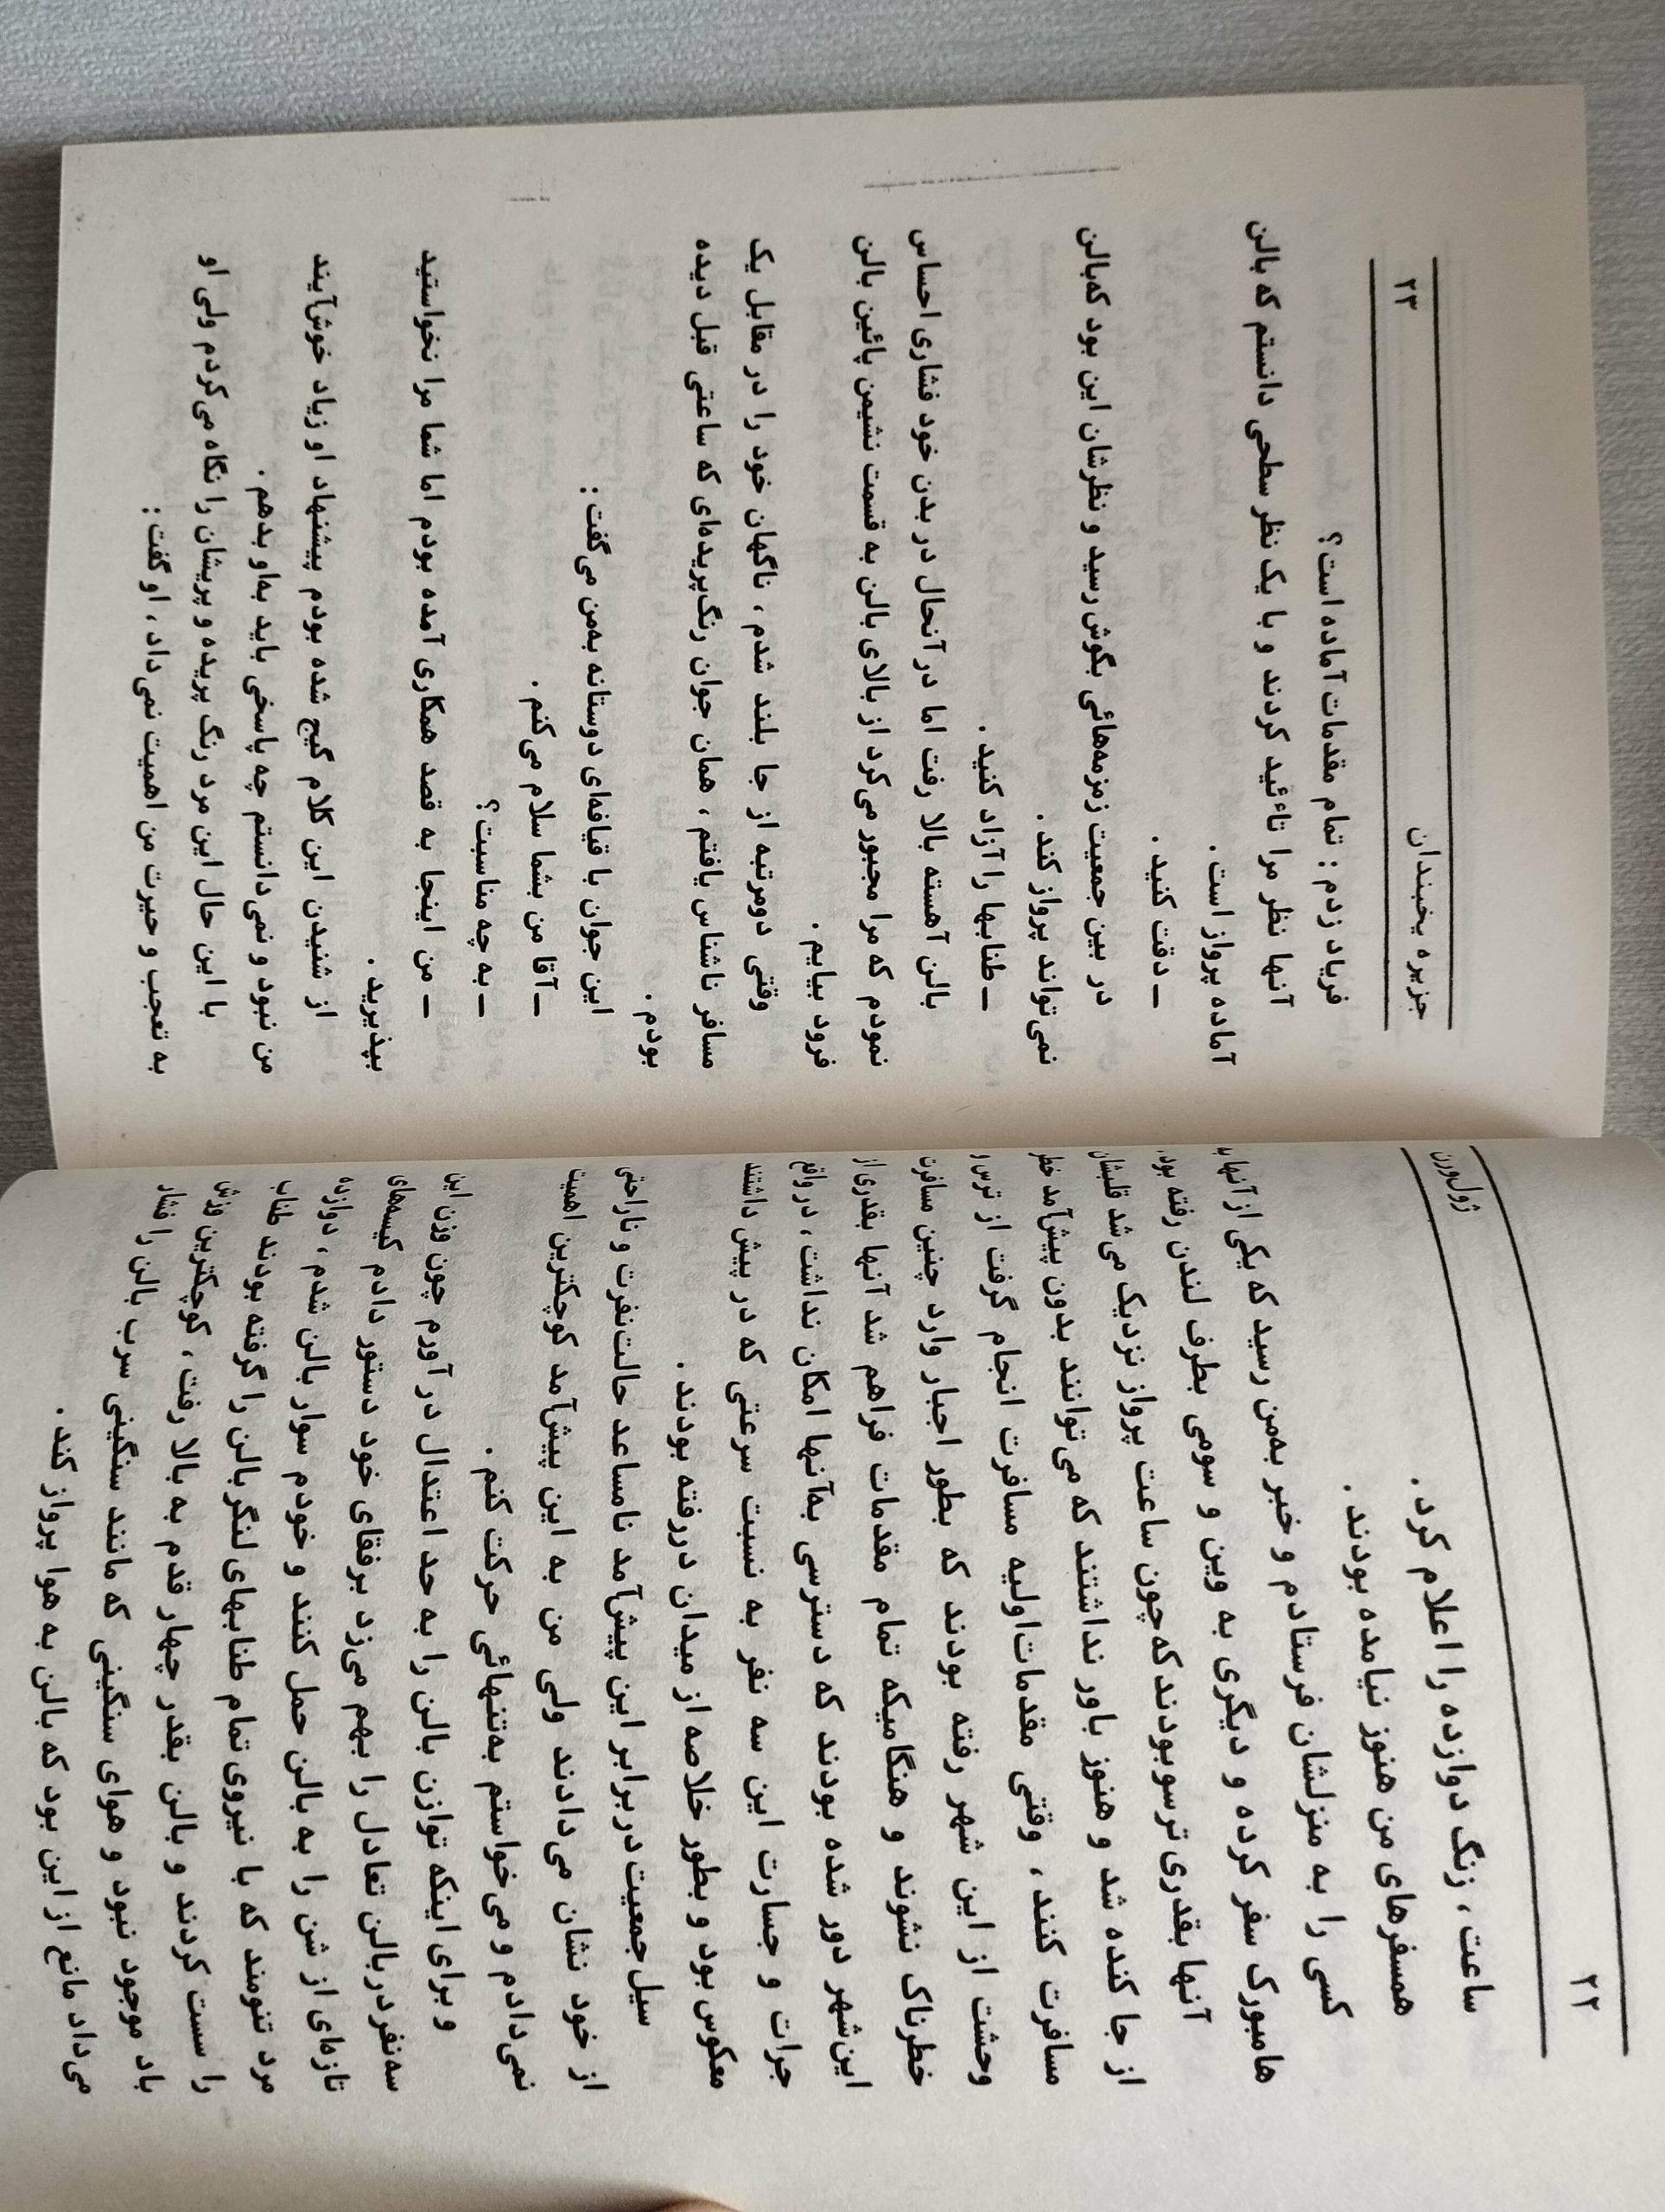 ۲۲
ژول‌ورن
ساعت، زنگ دوازده را اعلام کرد.
همسفرهای من هنوز نیامده بودند.
کسی را به منزلشان فرستادم و خبر به‌من رسید که یکی از آنها با
هامبورک سفر کرده و دیگری به وین و سومی بطرف لندن رفته بود.
آنها بقدری ترسو بودند که چون ساعت پرواز نزدیک می‌شد قلبشان
از جا کنده شد و هنوز باور نداشتند که می‌توانند بدون پیش‌آمد خطر
مسافرت کنند، وقتی مقدمات‌اولیه مسافرت انجام گرفت از ترس و
وحشت از این شهر رفته بودند که بطور اجبار وارد چنین مسافرت
خطرناک نشوند و هنگامیکه تمام مقدمات فراهم شد آنها بقدری از
این‌شهر دور شده بودند که دسترسی به‌آنها امکان نداشت، در واقع
جرات و جسارت این سه نفر به نسبت سرعتی که در پیش داشتند
معکوس بود و بطور خلاصه از میدان دررفته بودند.
سیل جمعیت در برابر این پیش‌آمد نامساعد حالت‌نفرت و ناراحتی
از خود نشان می‌دادند ولی من به این پیش‌آمد کوچکترین اهمیت
نمی‌دادم و می‌خواستم به‌تنهائی حرکت کنم.
و برای اینکه توازن بالن را به حد اعتدال در آورم چون وزن این
سه‌نفر در بالن تعادل را بهم می‌زد برفقای خود دستور دادم کیسه‌های
تازه‌ای از شن را به بالن حمل کنند و خودم سوار بالن شدم، دوازده
مرد تنومند که با نیروی تمام طنابهای لنگر بالن را گرفته بودند طناب
را سست کردند و بالن بقدر چهار قدم به بالا رفت، کوچکترین وزش
باد موجود نبود و هوای سنگینی که مانند سنگینی سرب بالن را فشار
می‌داد مانع از این بود که بالن به هوا پرواز کند.
جزیره یخبندان
۲۳
فریاد زدم: تمام مقدمات آماده است؟
آنها نظر مرا تاءئید کردند و با یک نظر سطحی دانستم که بالن
آماده پرواز است.
ــ دقت کنید.
در بین جمعیت زمزمه‌هائی بگوش رسید و نظرشان این بود که‌بالن
نمی‌تواند پرواز کند.
ــ طنابها را آزاد کنید.
بالن آهسته بالا رفت اما در آنحال در بدن خود فشاری احساس
نمودم که مرا مجبور می‌کرد از بالای بالن به قسمت نشیمن پائین بالن
فرود بیایم.
وقتی دومرتبه از جا بلند شدم، ناگهان خود را در مقابل یک
مسافر ناشناس یافتم، همان جوان رنگ‌پریده‌ای که ساعتی قبل دیده
بودم.
این جوان با قیافه‌ای دوستانه به‌من می‌گفت:
ــ آقا من بشما سلام می‌کنم.
ــ به چه مناسبت؟
ــ من اینجا به قصد همکاری آمده بودم اما شما مرا نخواستید
بپذیرید.
از شنیدن این کلام گیج شده بودم پیشنهاد او زیاد خوش‌آیند
من نبود و نمی‌دانستم چه پاسخی باید به‌او بدهم.
با این حال این مرد رنگ پریده و پریشان را نگاه می‌کردم ولی او
به تعجب و حیرت من اهمیت نمی‌داد، او گفت: